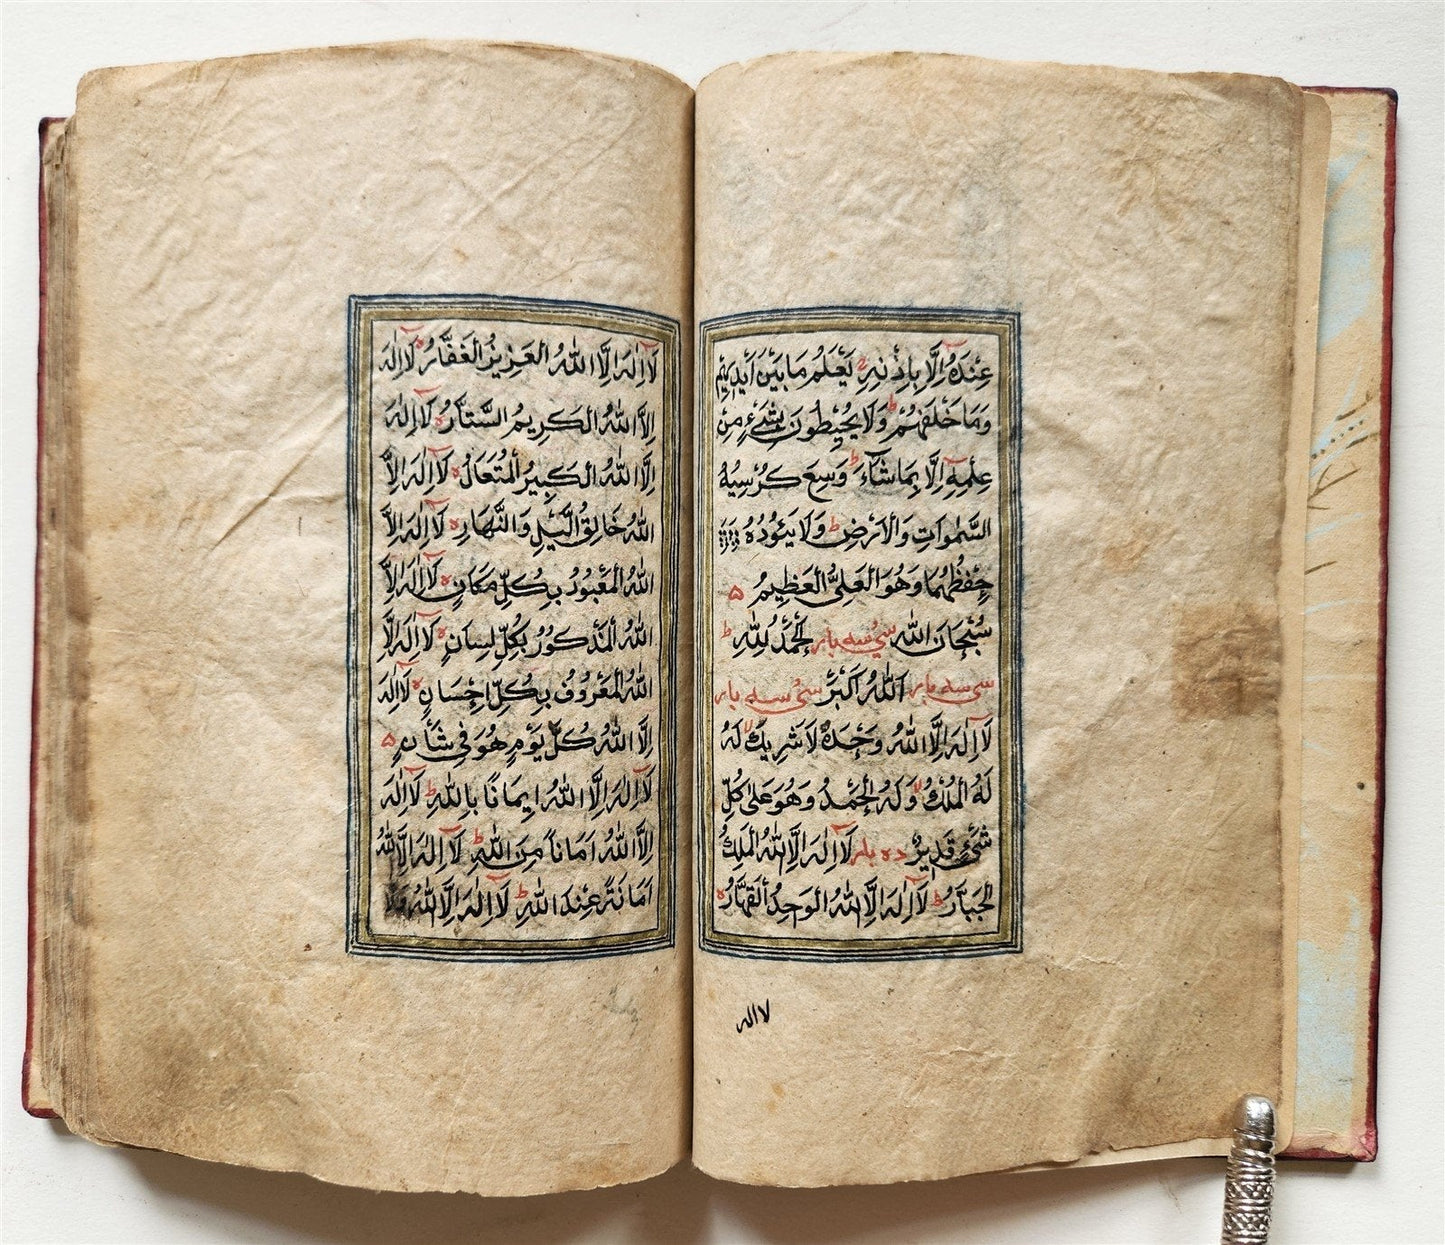 عِنْدَهُ اِلَّا بِاِذْنِهِ يَعْلَمُ مَا بَيْنَ اَيْدِيْهِمْ
وَمَا خَلْفَهُمْ ط وَلَا يُحِيْطُونَ بِشَيْءٍ مِنْ
عِلْمِهِ اِلَّا بِمَا شَآءَ ط وَسِعَ كُرْسِيُّهُ
السَّمٰوَاتِ وَالْاَرْضِ ط وَلَا يَئُودُهُ
حِفْظُهُمَا وَهُوَ الْعَلِىُّ الْعَظِيْمُ ه
سُبْحَانَ اللّٰهِ سى سه بار اَلْحَمْدُ لِلّٰهِ ط
سى سه بار اَللّٰهُ اَكْبَرُ سى سه بار
لَآ اِلٰهَ اِلَّا اللّٰهُ وَحْدَهُ لَا شَرِيْكَ لَهُ
لَهُ الْمُلْكُ وَلَهُ الْحَمْدُ وَهُوَ عَلٰى كُلِّ
شَيْءٍ قَدِيْرٌ ده بار لَآ اِلٰهَ اِلَّا اللّٰهُ الْمَلِكُ
الْجَبَّارُ ط لَآ اِلٰهَ اِلَّا اللّٰهُ الْوَحِدُ الْقَهَّارُ ه
لا اله
لَآ اِلٰهَ اِلَّا اللّٰهُ الْعَزِيْزُ الْغَفَّارُ ه لَآ اِلٰهَ
اِلَّا اللّٰهُ الْكَرِيمُ السَّتَّارُ ه لَآ اِلٰهَ
اِلَّا اللّٰهُ الْكَبِيْرُ الْمُتَعَالُ ه لَآ اِلٰهَ اِلَّا
اللّٰهُ خَالِقُ الَّيْلِ وَالنَّهَارِ ه لَآ اِلٰهَ اِلَّا
اللّٰهُ الْمَعْبُوْدُ بِكُلِّ مَكَانٍ ه لَآ اِلٰهَ اِلَّا
اللّٰهُ الْمَذْكُوْرُ بِكُلِّ لِسَانٍ ه لَآ اِلٰهَ اِلَّا
اللّٰهُ الْمَعْرُوْفُ بِكُلِّ اِحْسَانٍ ه لَآ اِلٰهَ
اِلَّا اللّٰهُ كُلَّ يَوْمٍ هُوَ فِى شَأْنٍ ه
لَآ اِلٰهَ اِلَّا اللّٰهُ اِيمَانًا بِاللّٰهِ ط لَآ اِلٰهَ
اِلَّا اللّٰهُ اَمَانًا مِنَ اللّٰهِ ط لَآ اِلٰهَ اِلَّا اللّٰهُ
اَمَانَةً عِنْدَ اللّٰهِ ط لَآ اِلٰهَ اِلَّا اللّٰهُ